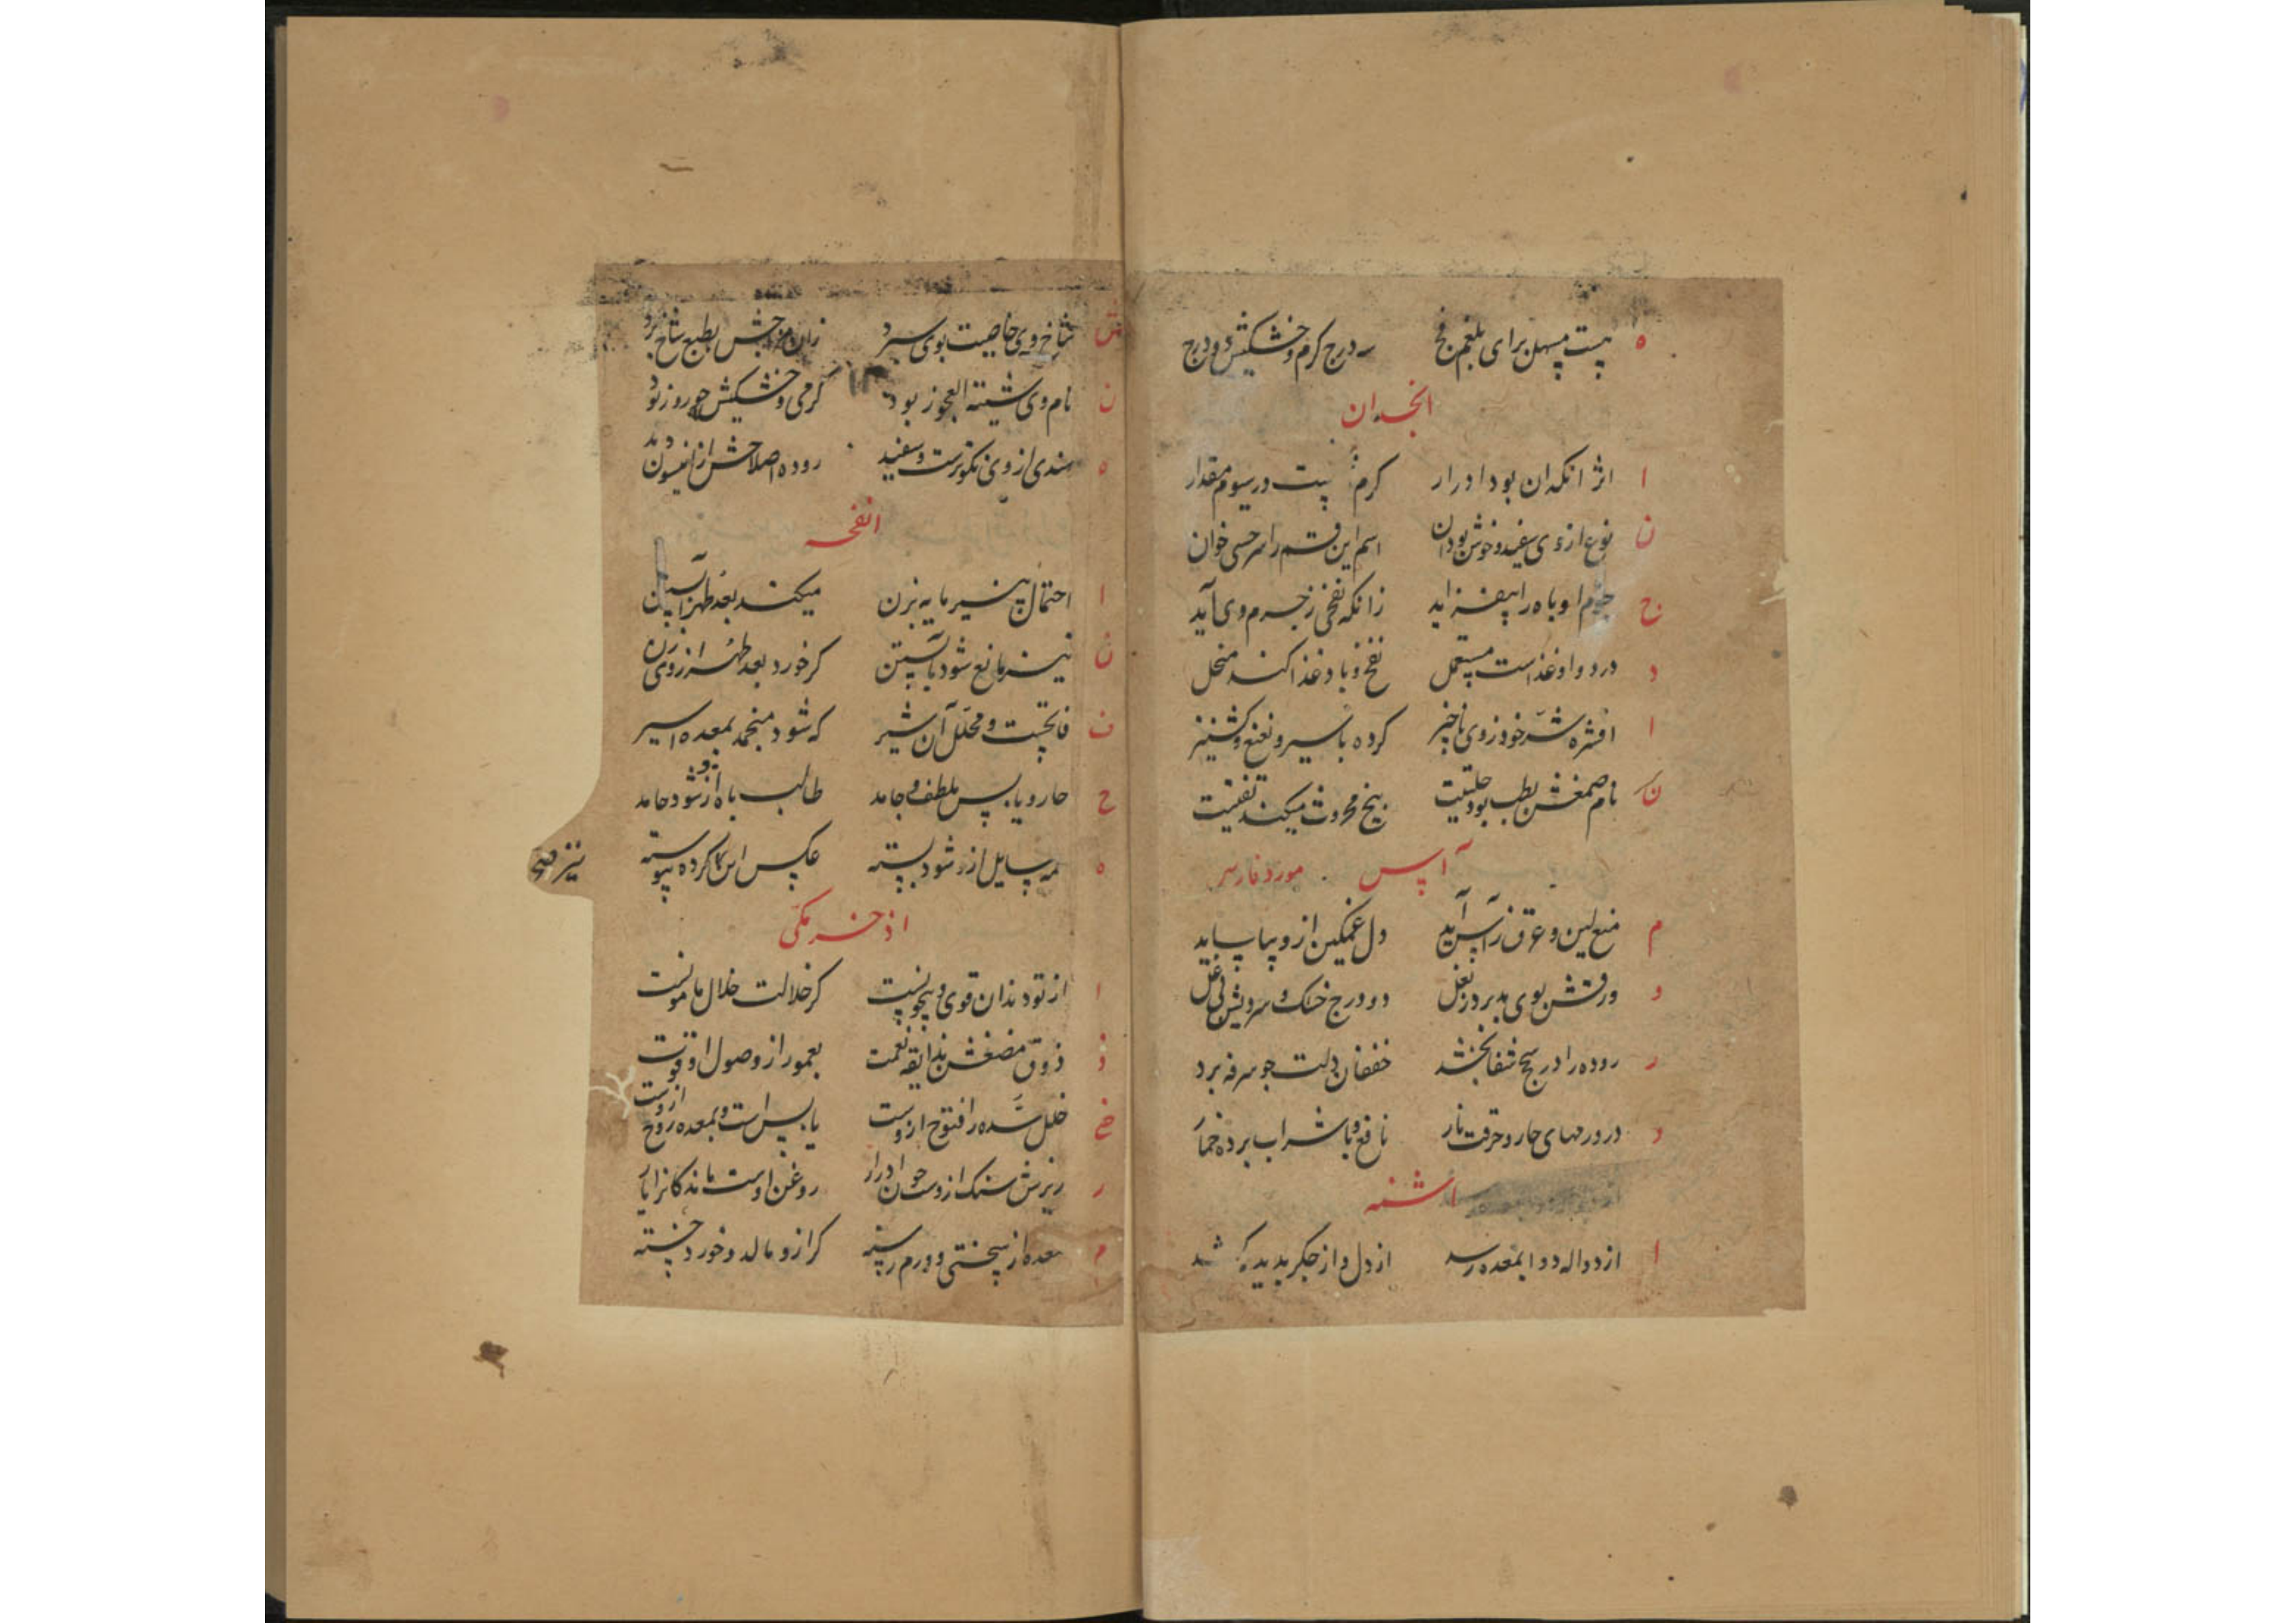 ه هست مسهل برای بلغم فج سه درج کرم و خشکیش دو درج
انجدان
ا اثر انکدان بود ادرار کرم هست در سیوم مقدار
ن نوع از وی سفید و خوش بو دان اسم این قسم را سرخسی خوان
ج جرم او باه را بیفزاید زانکه نفخی ز جرم وی آید
د در دوا و غذاست مستعمل نفخ و باد غذا کند منحل
ا افشره خود ز وی ناچیز کرده با سیر و نعنع و کشنیز
ن نام صمغش بطب بود حلتیت بیخ محروث میکند تفتیت
آس مورد فارسی
م منع لین و عرق ز آس آید دل غمکین ازو بیاساید
و ورقش بوی بد برد ز بغل دو درج خشک و سردیش
ر روده را در سحج شفا بخشد خفقان دلت چو سرفه برد
د در ورمهای حار و حرقت نار نافع و با شراب برده خمار
اشنه
ا از دواله دوا بمعده رسد از دل و از جکر بدید
ش شاخ وی خاصیت بوی سپرد زان بطبع شاخ برد
ن نام وی شیبة العجوز بود کرمی و خشکیش چو روز نود
ه هندی از وی نکوترست و سفید روده اصلاحش از انیسون دید
انفحه
ا احتمال پنیر مایه بزن میکند بعد طهر آبستن
ن نیز مانع شود بآبستن کر خورد بعد طهر از وی زن
ف فاتحست و محلل آن شیر که شود منجمد بمعده اسیر
ح حار و یابس ملطف و جامد طالب باه ازو شود حامد
ه همه سایل ازو شود بسته عکس این کار کرده پیوسته
نیز فتح
اذخر مکی
ا از تو دندان قوی و نیکوست کر خلالت خلال مامونست
ذ ذوق مضغش بذایقه نعمت بعمور از وصول او قوت
خ خلل سده را فتوح ازوست یابس است و بمعده روح ازوست
ر ریزش سنک ازوست چون ادرار روغن اوست ماندکانرا یار
م معده از سختی و ورم رسته کر ازو مالد و خورد خسته